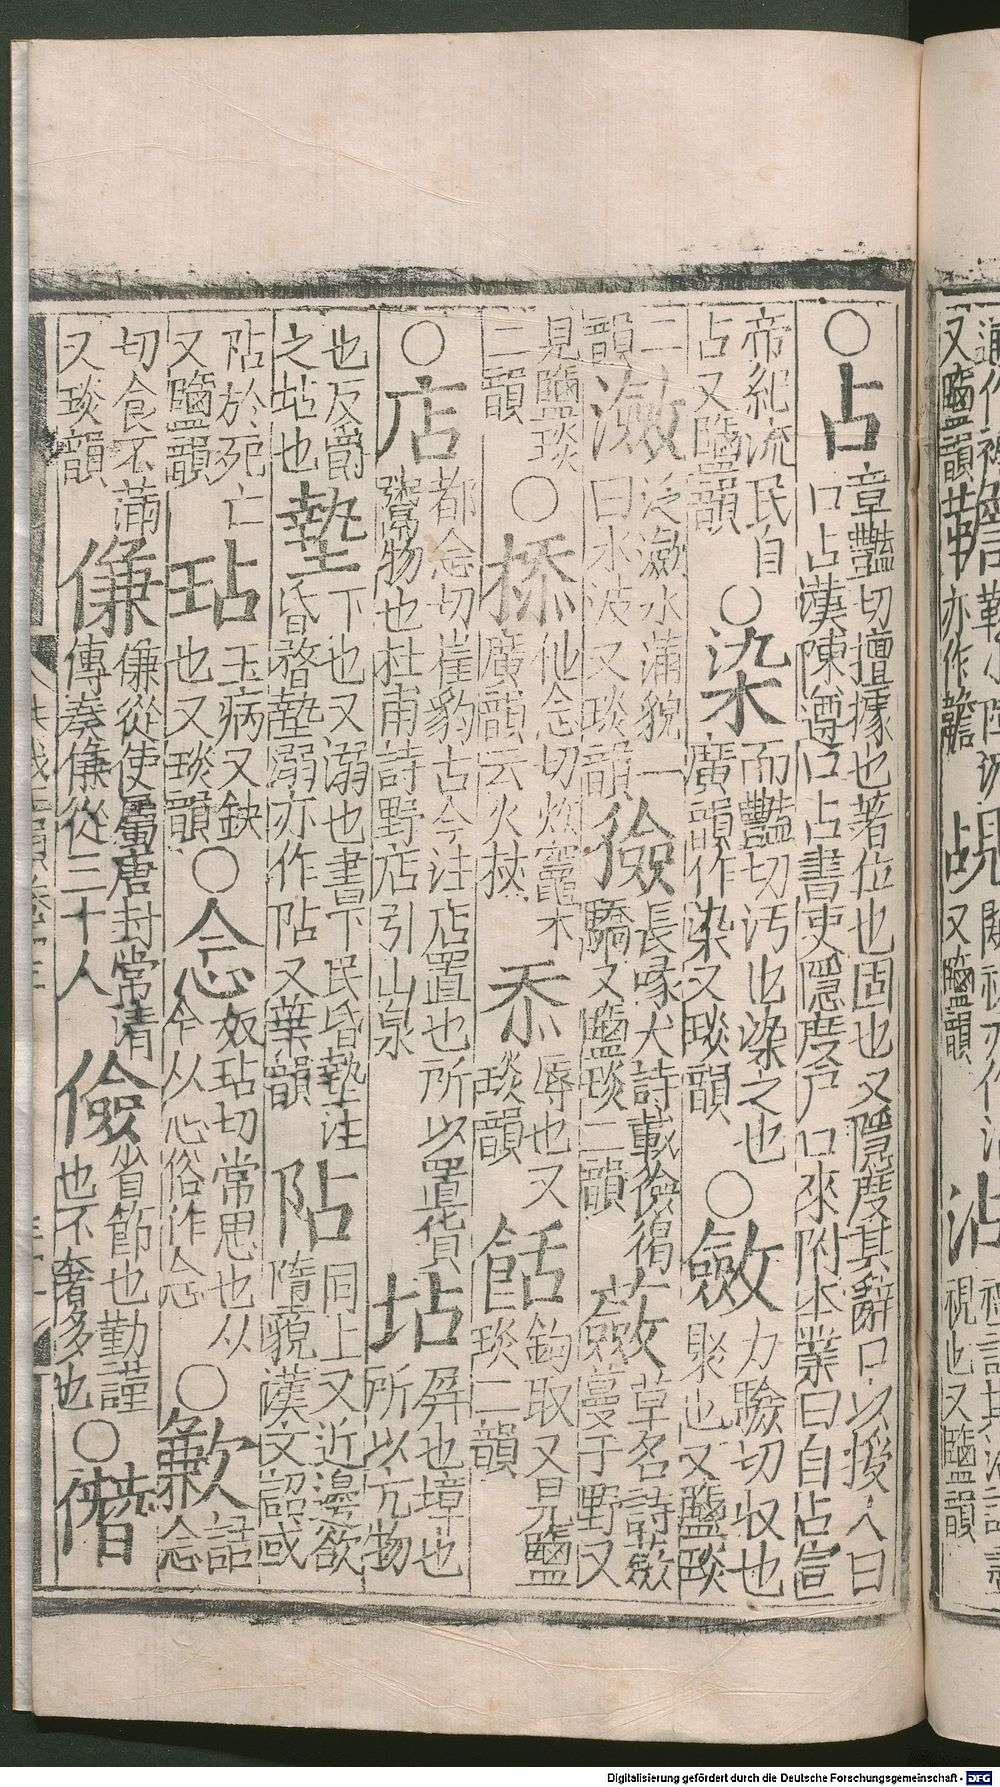 ○占章豔切擅據也著位也固也又隱度其辭口以授人曰口占漢陳遵口占書吏隱度戶口來附本業曰自占宣
帝紀流民自占又鹽韻○染而豔切污也染之也廣韻作染又琰韻○斂力驗切收也聚也又鹽琰
二韻瀲泛瀲水滿貌一曰水波又琰韻獫長喙犬詩載獫猲驕又鹽琰二韻蘞草名詩蘞蔓于野又
見鹽琰二韻○㮇他念切炊竈木廣韻云火杖忝辱也又琰韻餂鉤取又見鹽琰二韻
○店都念切崔豹古今注店置也所以置貨鬻物也杜甫詩野店引山泉坫屏也墇也所以亢物
也反爵之坫也墊下也又溺也書下民昏墊注昏瞀墊溺亦作阽又葉韻阽同上又近邊欲墮貌漢文詔或
阽於死亡又鹽韻玷玉病又缺也又琰韻○念奴玷切常思也从今从心俗作念○歉詰念
切食不滿又琰韻傔傔從使屬唐封常清傳奏傔從三十人儉省節也勤謹也不奢多也○僭
Digitalisierung gefördert durch die Deutsche Forschungsgemeinschaft - DFG